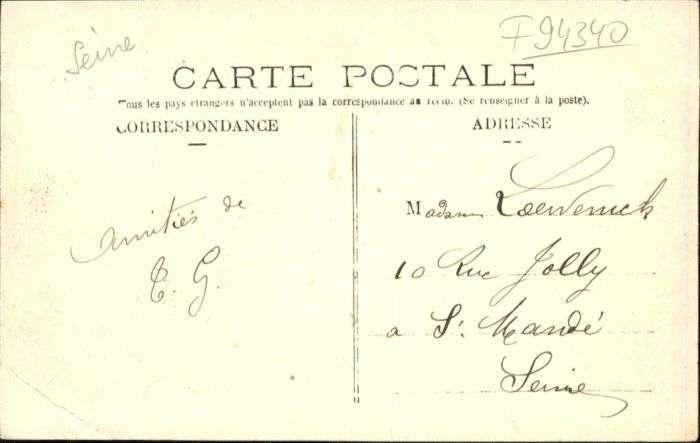 Seine
F94340
CARTE POSTALE
Tous les pays étrangers n'acceptent pas la correspondance au recto. (Se renseigner à la poste).
CORRESPONDANCE
ADRESSE
Amitiés de
T. G.
Madame Loewenick
10 Rue Jolly
a St. Mandé
Seine